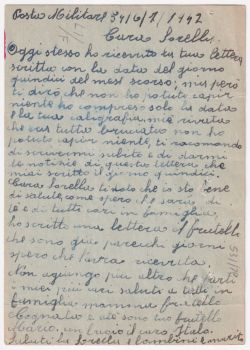 Posta Militare 34/6/1/1942
Cara Sorella.
Oggi stesso ho ricevuto la tua lettera
scritta con la data del giorno
quindici del mese scorso; ma però
ti dico che non ho potuto capir
niente ho compreso solo la data
e la tua caligrafia mie
che era tutta bruciata non ho
potuto capire niente, ti racomando
di scrivermi subito e di darmi
le notizie di questa lettera che
mi ai scritto il giorno quindici.
Cara Sorella ti dico che io sto bene
di salute, come spero che sarai di
te e di tutti cari in famiglia,
ho scritto una lettera ai fratelli
che sono già parecchi giorni
spero che l'avrà ricevuta,
Non agiungo più altro che farti
i miei più cari saluti a tutti in
famiglia mamma fratello
Cognata e a te sono tuo fratello
Mario, un bacio il caro Italo.
Saluti la Sorella i bambini e marito